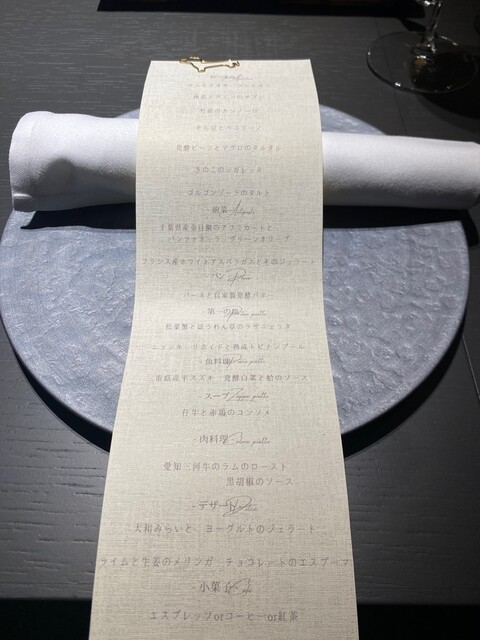 竹炭のカンノーロ
そら豆とペコリーノ
発酵ビーツとマグロのタルタル
きのこのシガレッタ
ゴルゴンゾーラのタルト
- 前菜
千葉県産金目鯛のアフミカートと
パンツァネッラ、グリーンオリーブ
フランス産ホワイトアスパラガスとそのジェラート
- パン
パーネと自家製発酵バター
- 第一の皿
松葉蟹とほうれん草のラザニェッタ
ニョッキ リボイドと熟成トピナンブール
- 魚料理
産平スズキ 発酵白菜と蛤のソース
- スープ
仔牛と赤鶏のコンソメ
- 肉料理
愛知三河牛のラムのロースト
黒胡椒のソース
- デザート
大和みらいと、ヨーグルトのジェラート
ライムと生姜のメリンガ チョコレートのエスプーマ
- 小菓子
エスプレッソorコーヒーor紅茶